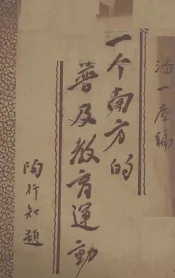 潘一塵編
一个南方的
普及教育運動
陶行知題